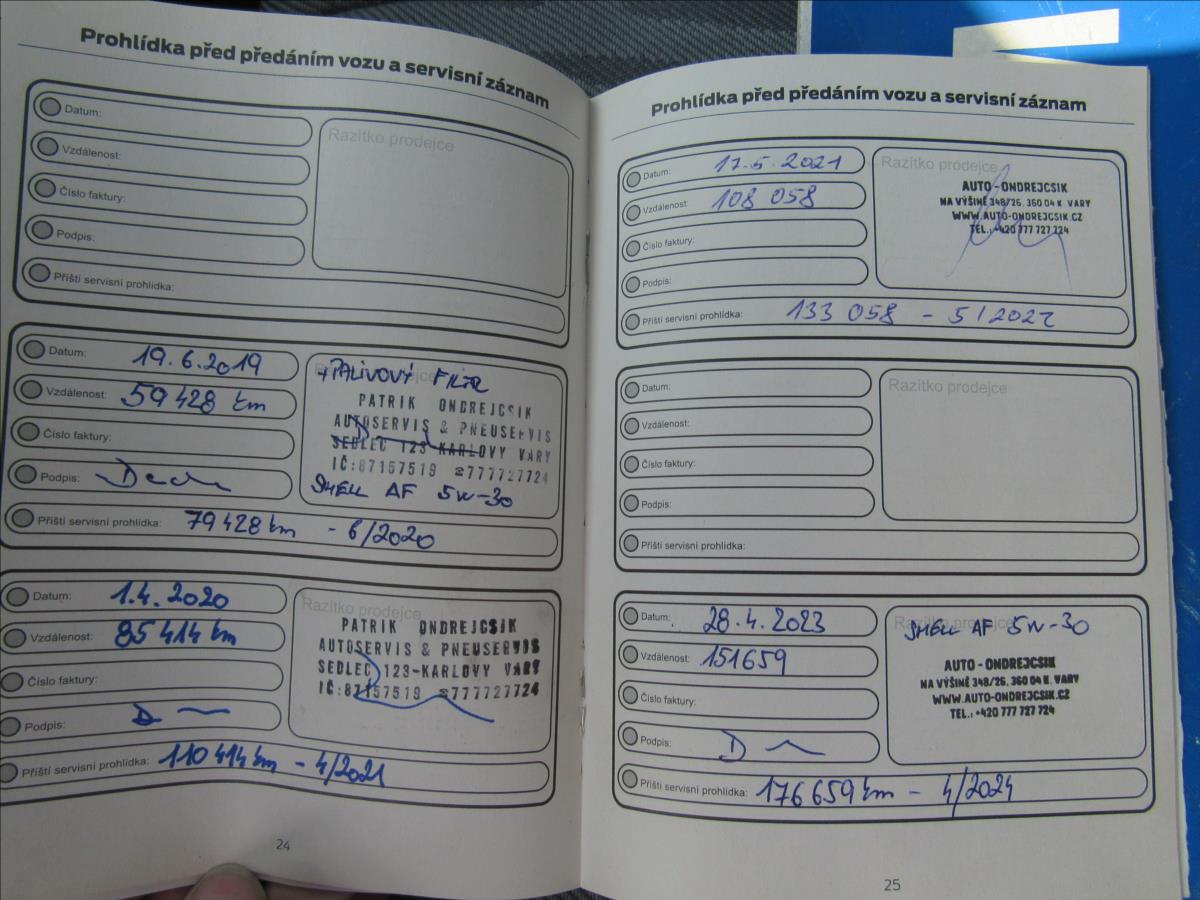 Prohlídka před předáním vozu a servisní záznam
Datum:
Vzdálenost:
Číslo faktury:
Podpis:
Příští servisní prohlídka:
Razítko prodejce
Datum: 19.6.2019
Vzdálenost: 59 428 km
Číslo faktury:
Podpis:
Příští servisní prohlídka: 79 428 km - 6/2020
+PALIVOVÝ FILTR
PATRIK ONDREJCSIK
AUTOSERVIS & PNEUSERVIS
SEDLEC 123-KARLOVY VARY
IČ:87157519 ☎777727724
SHELL AF 5W-30
Datum: 1.4.2020
Vzdálenost: 85 414 km
Číslo faktury:
Podpis:
Příští servisní prohlídka: 110 414 km - 4/2021
Razítko prodejce
PATRIK ONDREJCSIK
AUTOSERVIS & PNEUSERVIS
SEDLEC 123-KARLOVY VARY
IČ:87157519 ☎777727724
24
Prohlídka před předáním vozu a servisní záznam
Datum: 17.5.2021
Vzdálenost: 108 058
Číslo faktury:
Podpis:
Příští servisní prohlídka: 133 058 - 5/2022
Razítko prodejce
AUTO - ONDREJCSIK
NA VÝŠINĚ 348/26, 360 04 K. VARY
WWW.AUTO-ONDREJCSIK.CZ
TEL.: +420 777 727 724
Datum:
Vzdálenost:
Číslo faktury:
Podpis:
Příští servisní prohlídka:
Razítko prodejce
Datum: 28.4.2023
Vzdálenost: 151659
Číslo faktury:
Podpis:
Příští servisní prohlídka: 176 659 km - 4/2024
Razítko prodejce
SHELL AF 5W-30
AUTO - ONDREJCSIK
NA VÝŠINĚ 348/26, 360 04 K. VARY
WWW.AUTO-ONDREJCSIK.CZ
TEL.: +420 777 727 724
25